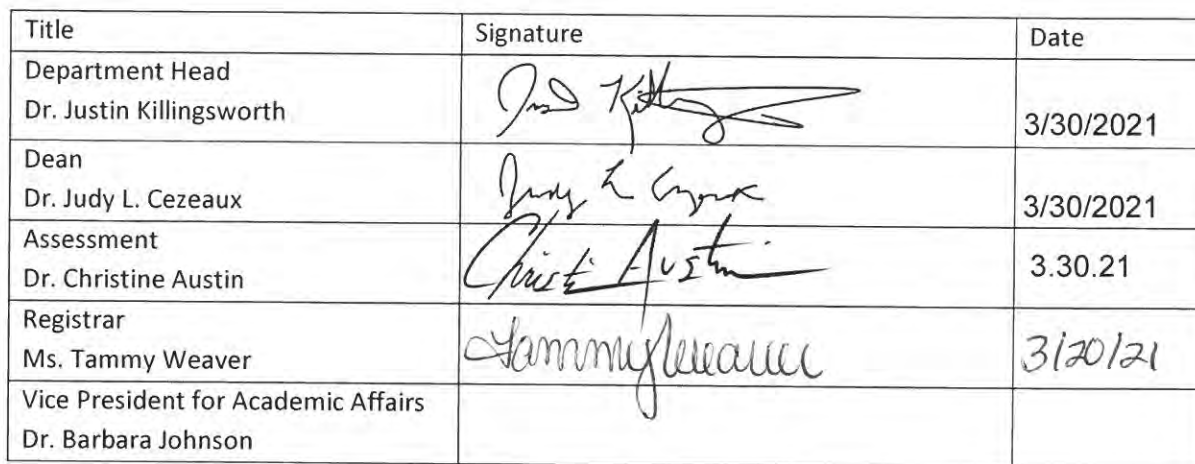 Title Signature Date
Department Head
Dr. Justin Killingsworth
3/30/2021
Dean
Dr. Judy L. Cezeaux
Judy L Cezeaux
3/30/2021
Assessment
Dr. Christine Austin
Christi Austin
3.30.21
Registrar
Ms. Tammy Weaver
Tammy Weaver
3/20/21
Vice President for Academic Affairs
Dr. Barbara Johnson